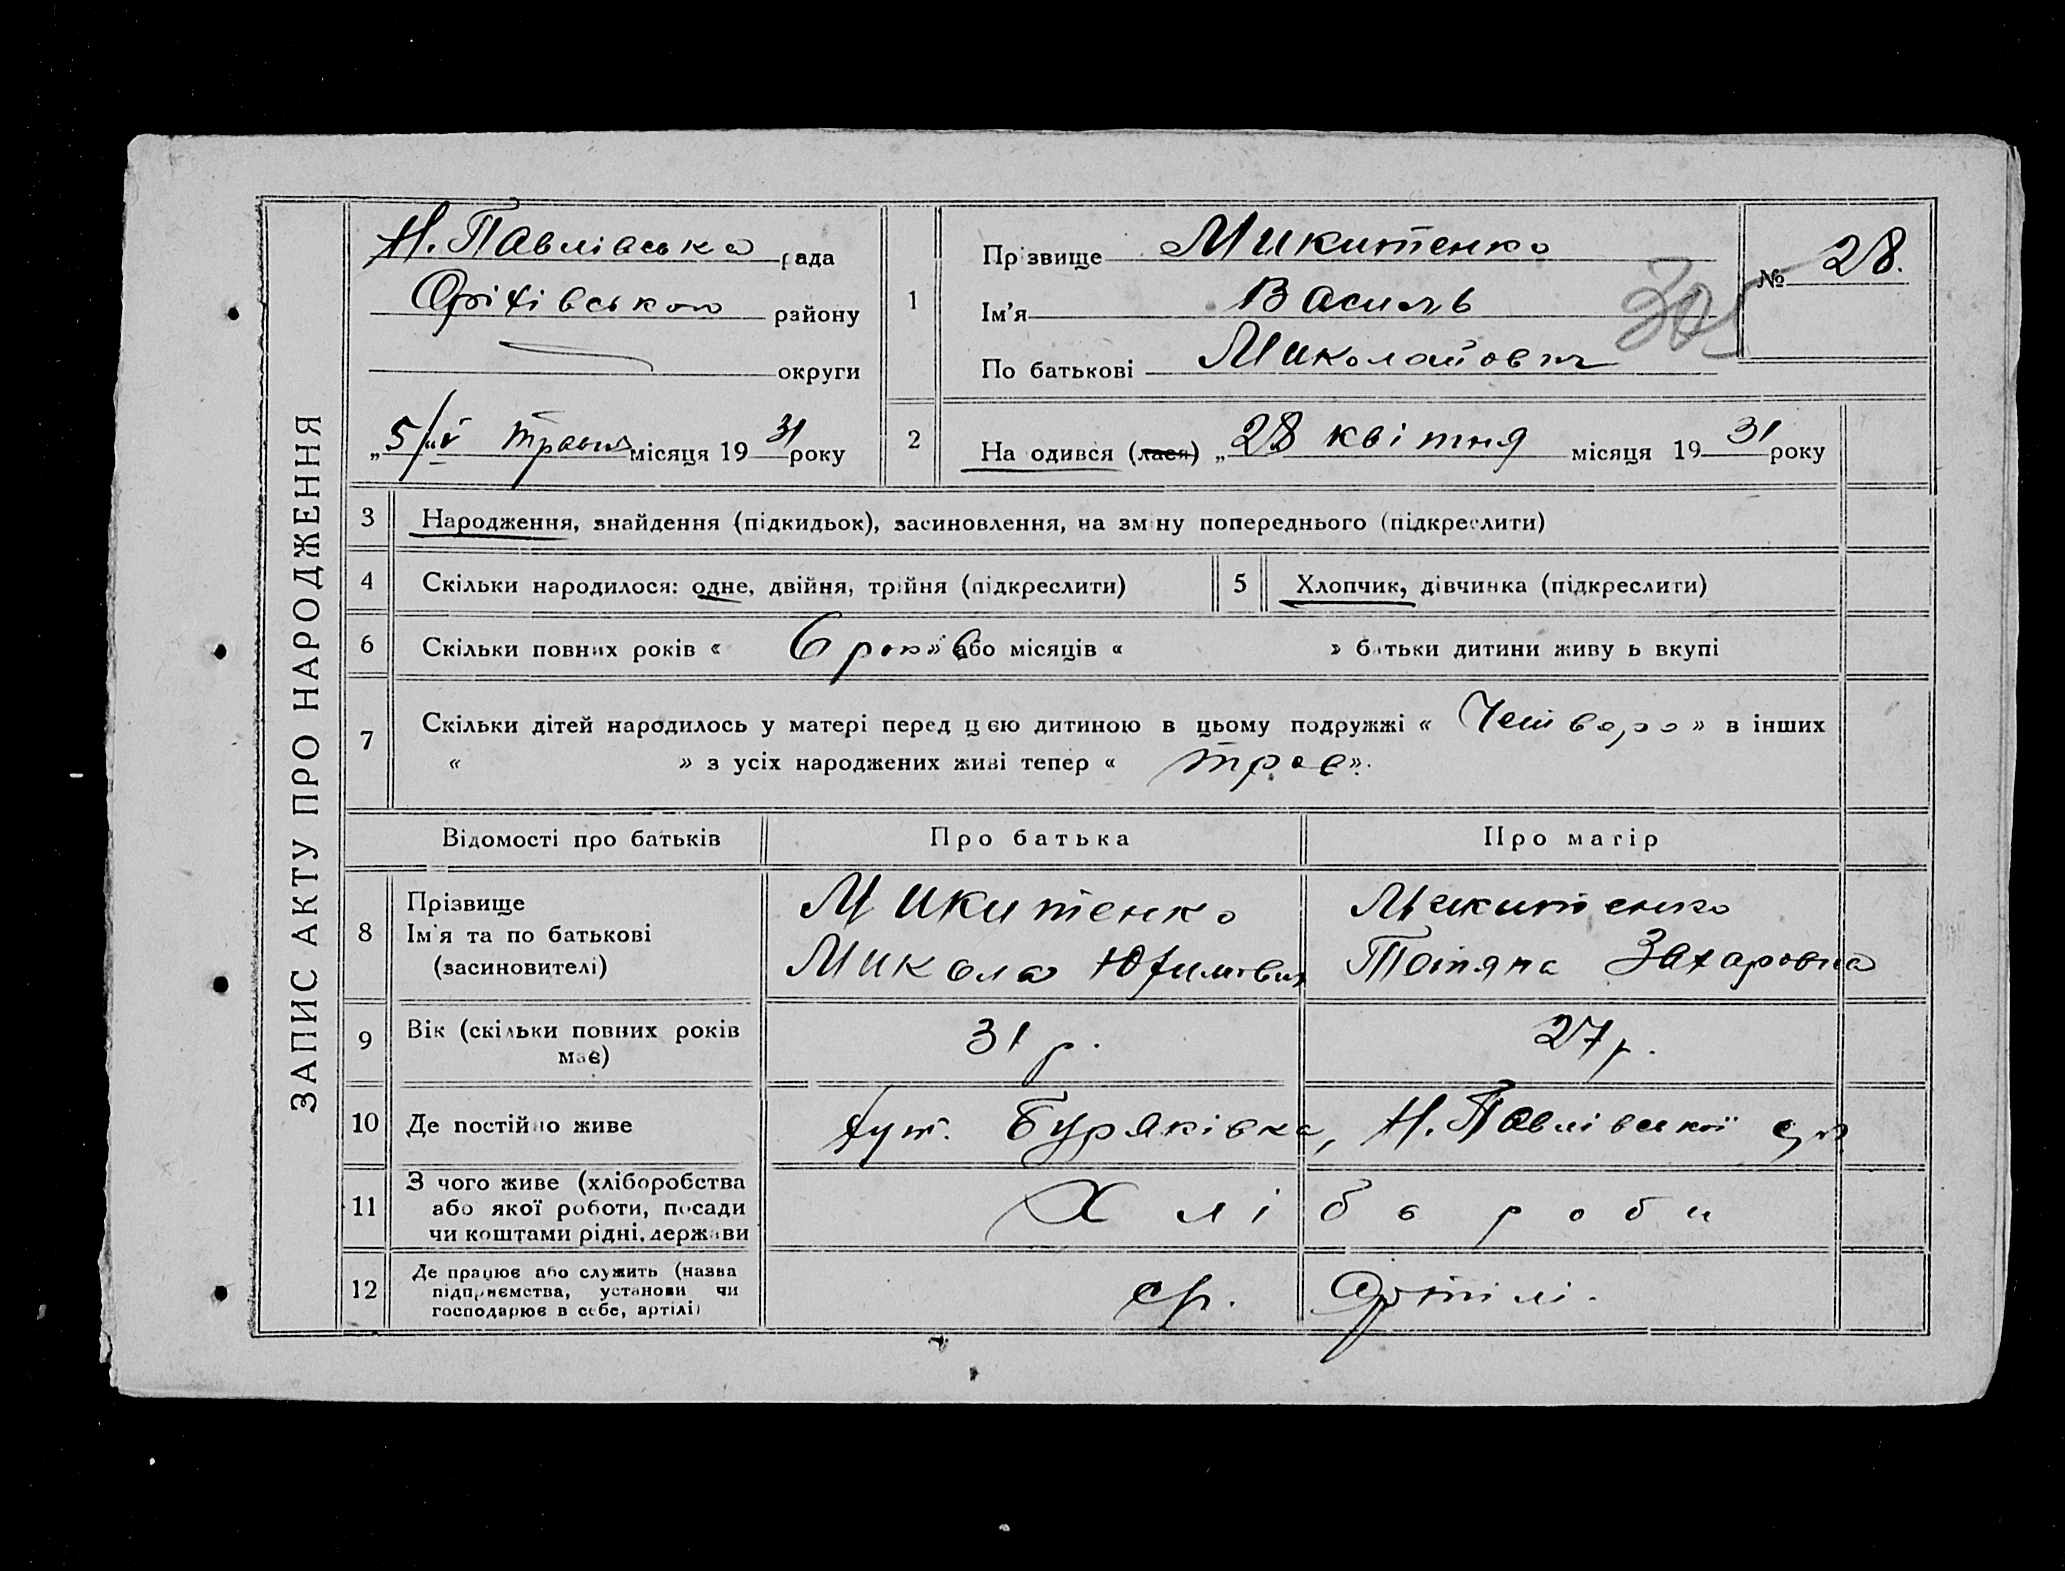 ЗАПИС АКТУ ПРО НАРОДЖЕННЯ
Н. Павлівська рада
Оріхівського району
округи
„5/V травня місяця 1931 року
1 Прізвище Микитенко
Ім'я Василь
По батькові Миколайович
№ 28.
2 На одився (лася) „28 квітня місяця 1931 року
3 Народження, знайдення (підкидьок), засиновлення, на зміну попереднього (підкреслити)
4 Скільки народилося: одне, двійня, трійня (підкреслити) 5 Хлопчик, дівчинка (підкреслити)
6 Скільки повних років « 6 років » або місяців « » батьки дитини живу ь вкупі
7 Скільки дітей народилось у матері перед цєю дитиною в цьому подружжі « Четверо » в інших
« » з усіх народжених живі тепер « троє ».
Відомості про батьків Про батька Про матір
8 Прізвище Микитенко Микитенко
Ім'я та по батькові Микола Юхимович Тотяна Захаровна
(засиновителі)
9 Вік (скільки повних років 31 р. 27 р.
має)
10 Де постійно живе хут. Буряківка, Н. Павлівської с/р
11 З чого живе (хліборобства Хлібороби
або якої роботи, посади
чи коштами рідні, держави
12 Де працює або служить (назва ср. Артілі.
підприємства, установи чи
господарює в себе, артілі)